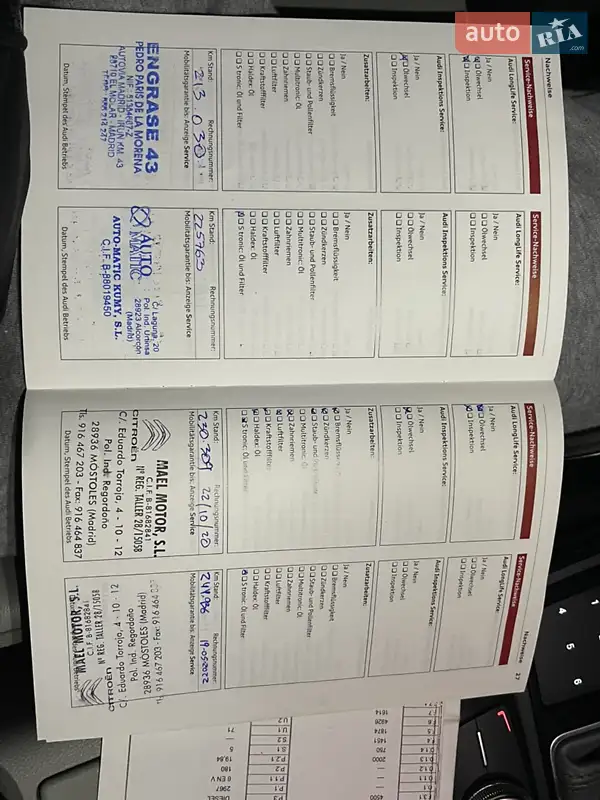 auto
RIA
.com
Nachweise
Service-Nachweise
Audi LongLife Service:
Ja / Nein
Ölwechsel
Inspektion
Audi Inspektions Service:
Ja / Nein
Ölwechsel
Inspektion
Zusatzarbeiten:
Ja / Nein
Bremsflüssigkeit
Zündkerzen
Staub- und Pollenfilter
Multitronic: Öl
Zahnriemen
Luftfilter
Kraftstofffilter
Haldex: Öl
S tronic: Öl und Filter
Km Stand: Rechnungsnummer:
213.030
Mobilitätsgarantie bis: Anzeige Service
ENGRASE 43
PEDRO PARIS DE LA MORENA
AUTOVIA MADRID - IRUN KM. 43
28710 EL MOLAR - MADRID
Datum, Stempel des Audi Betriebs
Service-Nachweise
Audi LongLife Service:
Ja / Nein
Ölwechsel
Inspektion
Audi Inspektions Service:
Ja / Nein
Ölwechsel
Inspektion
Zusatzarbeiten:
Ja / Nein
Bremsflüssigkeit
Zündkerzen
Staub- und Pollenfilter
Multitronic: Öl
Zahnriemen
Luftfilter
Kraftstofffilter
Haldex: Öl
S tronic: Öl und Filter
Km Stand: Rechnungsnummer:
225763
Mobilitätsgarantie bis: Anzeige Service
AUTO
MATIC
C/ Laguna, 20
Pol. Ind. Urtinsa
28923 Alcorcón
(Madrid)
AUTO-MATIC KUMY, S.L.
C.I.F. B-88019450
Datum, Stempel des Audi Betriebs
Service-Nachweise
Audi LongLife Service:
Ja / Nein
Ölwechsel
Inspektion
Audi Inspektions Service:
Ja / Nein
Ölwechsel
Inspektion
Zusatzarbeiten:
Ja / Nein
Bremsflüssigkeit
Zündkerzen
Staub- und Pollenfilter
Multitronic: Öl
Zahnriemen
Luftfilter
Kraftstofffilter
Haldex: Öl
S tronic: Öl und Filter
Km Stand: Rechnungsnummer:
230.309 22/10/20
Mobilitätsgarantie bis: Anzeige Service
MAEL MOTOR, S.L.
C.I.F. B-81682841
Nº REG. TALLER 28/15058
CITROËN
C/. Eduardo Torroja, 4 - 10 - 12
Pol. Ind. Regordoño
28936 MOSTOLES (Madrid)
Tls. 916 467 203 - Fax: 916 464 837
Datum, Stempel des Audi Betriebs
Nachweise 27
Service-Nachweise
Audi LongLife Service:
Ja / Nein
Ölwechsel
Inspektion
Audi Inspektions Service:
Ja / Nein
Ölwechsel
Inspektion
Zusatzarbeiten:
Ja / Nein
Bremsflüssigkeit
Zündkerzen
Staub- und Pollenfilter
Multitronic: Öl
Zahnriemen
Luftfilter
Kraftstofffilter
Haldex: Öl
S tronic: Öl und Filter
Km Stand: Rechnungsnummer:
19-05-2022
Mobilitätsgarantie bis: Anzeige Service
MAEL MOTOR, S.L.
CITROËN
C/. Eduardo Torroja, 4 - 10 - 12
Pol. Ind. Regordoño
28936 MOSTOLES (Madrid)
DIESEL
2967
6 EN V
180
19,84
5
71
4500
2000
750
1451
1874
4926
1614
P.3
P.1
P.1.1
P.2
P.2.1
S.1
S.2
U.1
U.2